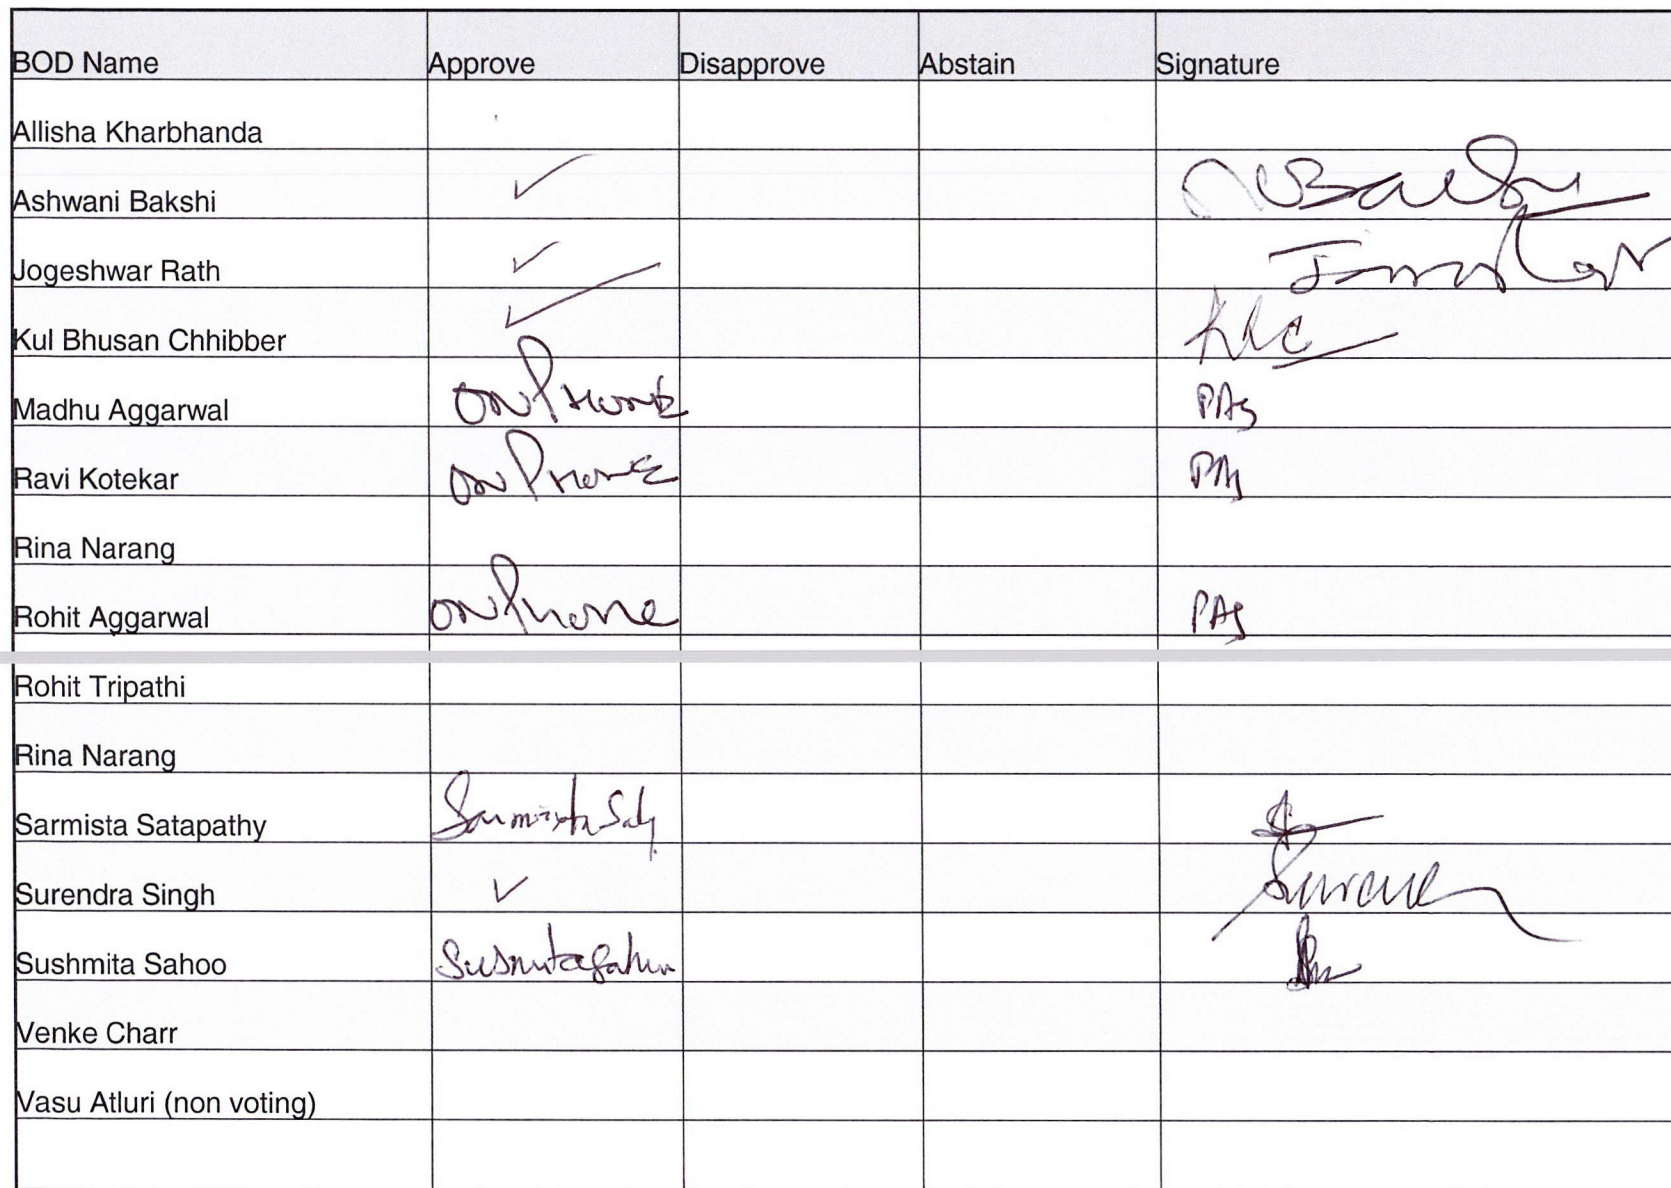 BOD Name Approve Disapprove Abstain Signature
Allisha Kharbhanda
Ashwani Bakshi ✓
Jogeshwar Rath ✓
Kul Bhusan Chhibber ✓ KLC
Madhu Aggarwal ON PHONE PAG
Ravi Kotekar ON PHONE PAG
Rina Narang
Rohit Aggarwal ON Phone PAG
Rohit Tripathi
Rina Narang
Sarmista Satapathy Sarmista
Surendra Singh ✓
Sushmita Sahoo Susmita Sahoo
Venke Charr
Vasu Atluri (non voting)